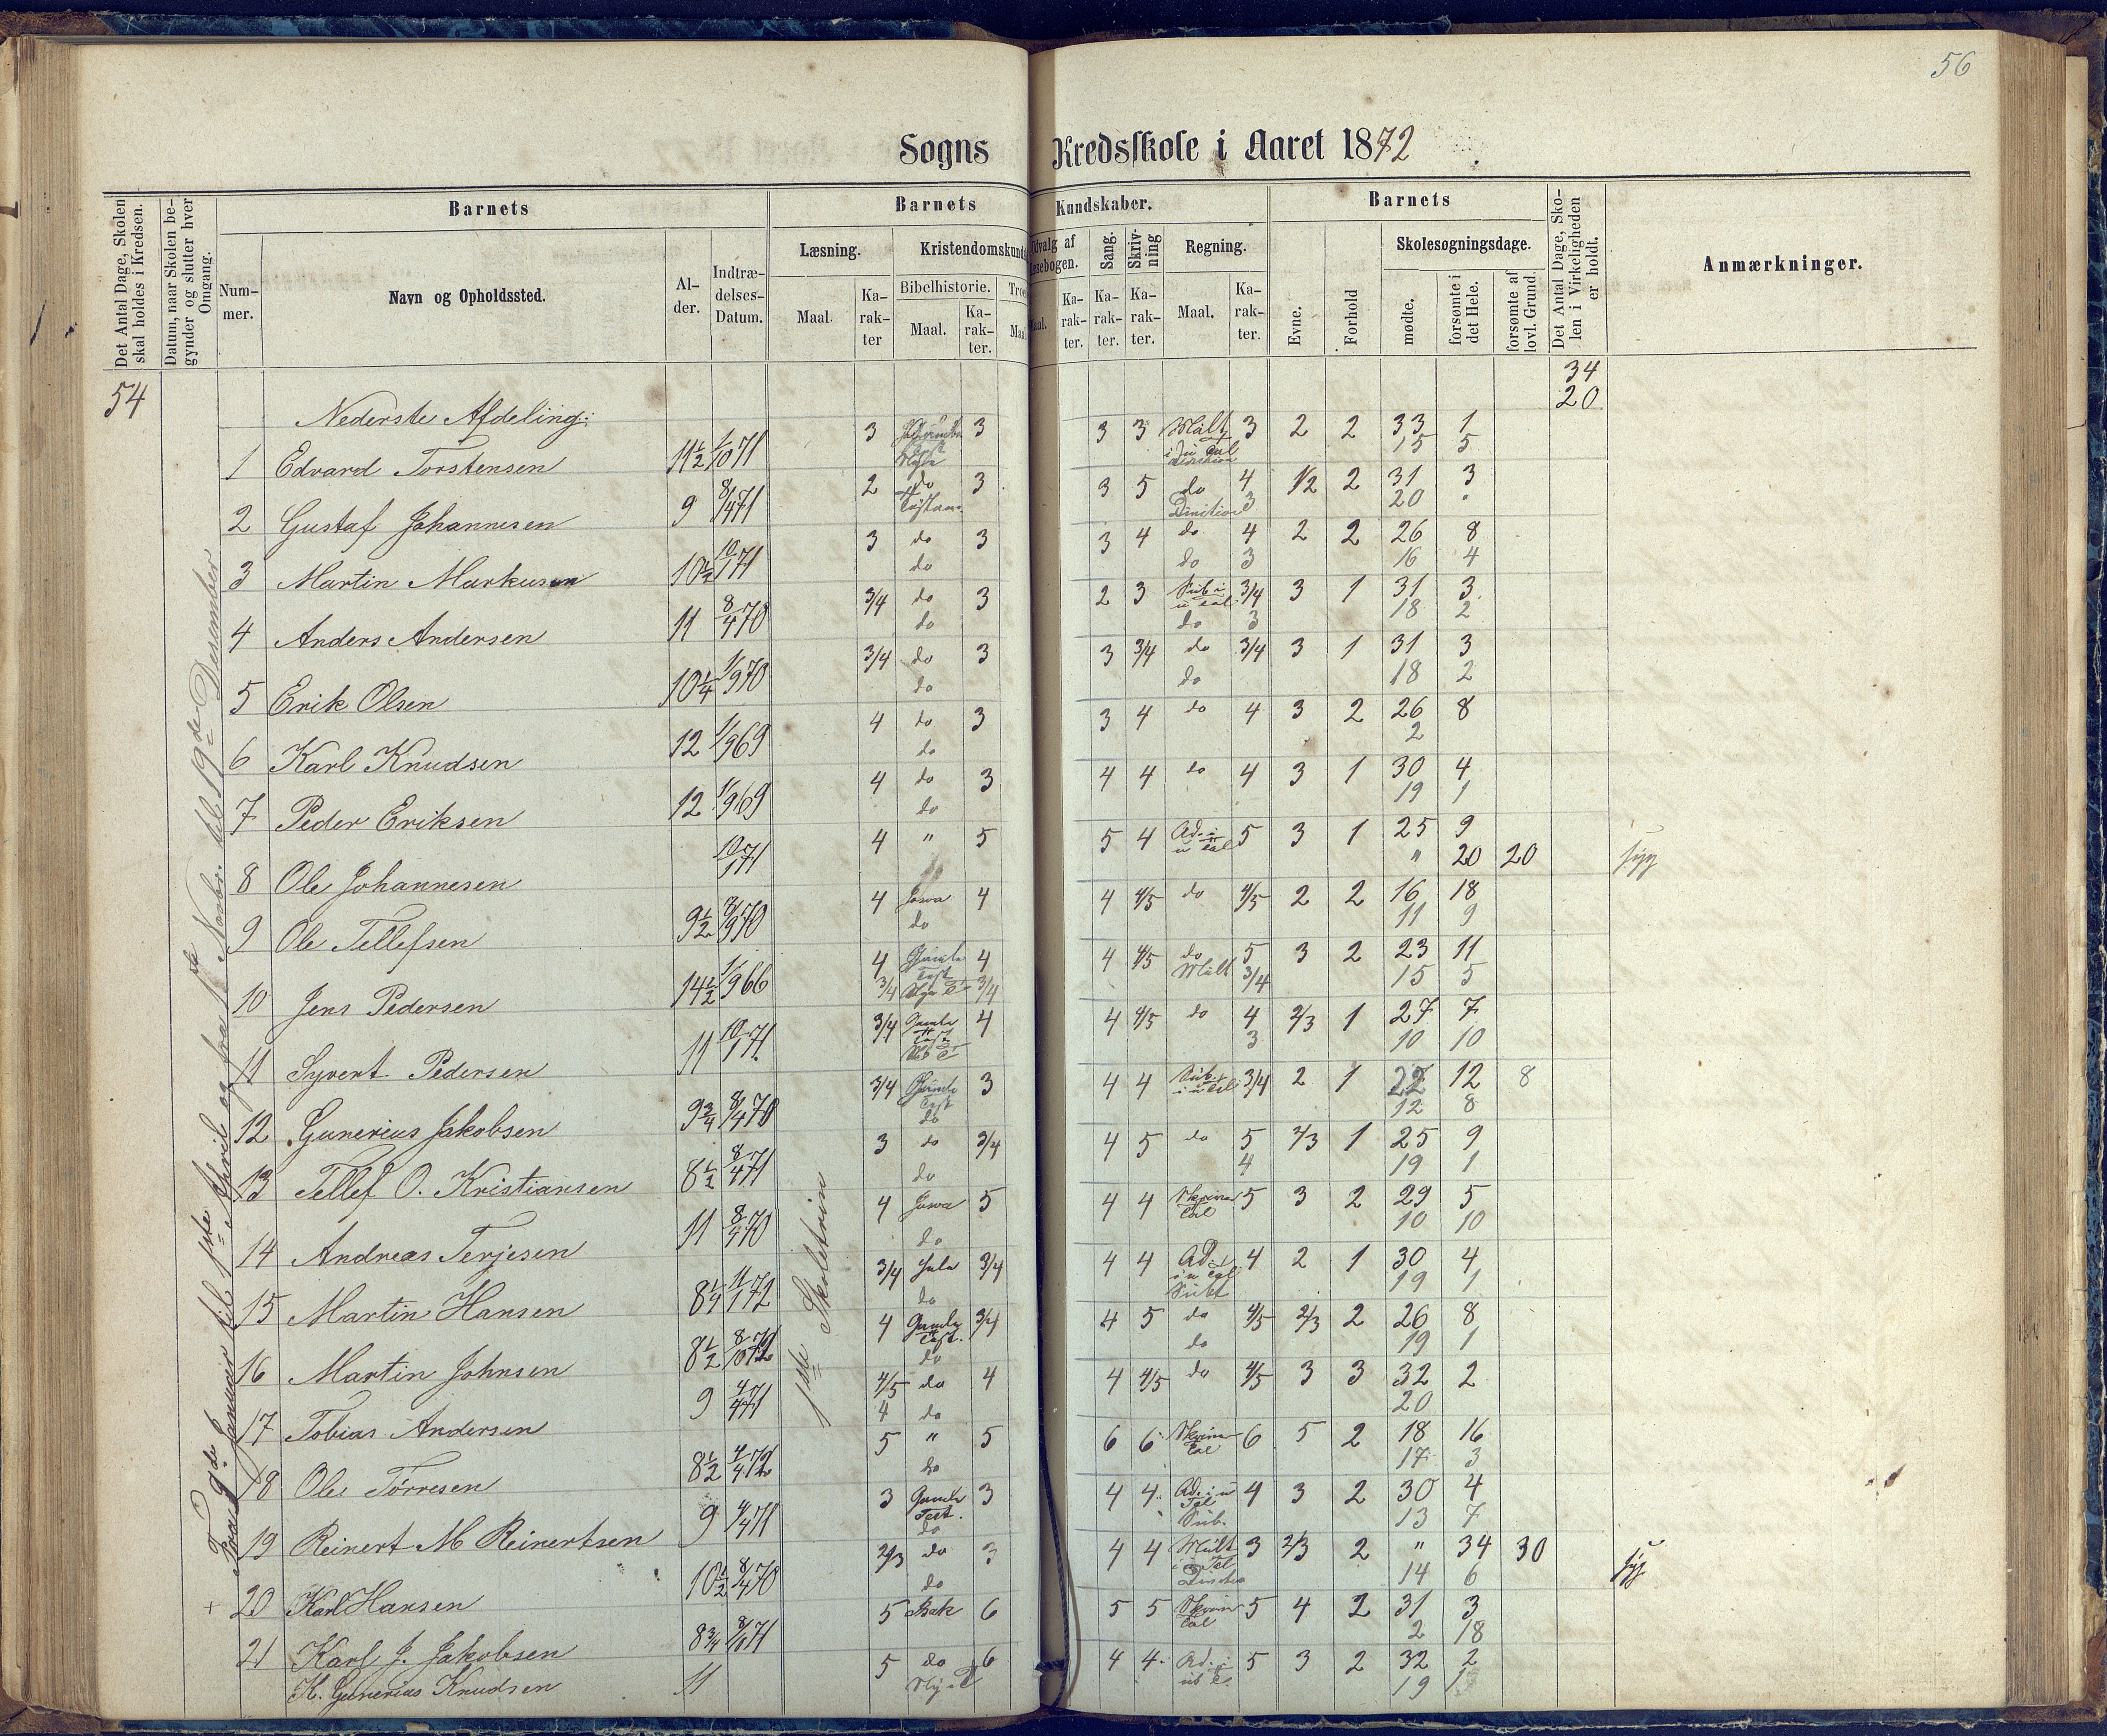 56
Sogns Kredsskole i Aaret 1872
Det Antal Dage, Skolen skal holdes i Kredsen.
Datum, naar Skolen begynder og slutter hver Omgang.
Barnets
Num-mer.
Navn og Opholdssted.
Al-der.
Indtræ-delses-Datum.
Barnets Kundskaber.
Læsning.
Maal.
Ka-rak-ter
Kristendomskund
Bibelhistorie.
Maal.
Ka-rak-ter.
Troe
Maal
Udvalg af
Læsebogen.
Maal.
Ka-rak-ter.
Sang.
Ka-rak-ter.
Skriv-ning
Ka-rak-ter.
Regning.
Maal.
Ka-rak-ter.
Barnets
Evne.
Forhold
Skolesøgningsdage.
mødte.
forsømte i det Hele.
forsømte af lovl. Grund.
Det Antal Dage, Sko-len i Virkeligheden er holdt.
Anmærkninger.
54
34
20
Fra 9de Januar til 1ste April og fra 1ste Novbr. til 19de Desember
1ste Skoletrin
Nederste Afdeling:
1 Edvard Torstensen 11½ 1/10 71 3 3 3 3 Mult 3 2 2 33 1
15 5
2 Gustaf Johannesen 9 8/4 71 2 do 3 3 5 do 4 1/2 2 31 3
3 20
3 Martin Markusen 10½ 10/1 71 3 do 3 3 4 do 4 2 2 26 8
do do 3 16 4
4 Anders Andersen 11 8/4 70 3/4 do 3 2 3 Sub i 3/4 3 1 31 3
do do 3 18 2
5 Erik Olsen 10¼ 1/9 70 3/4 do 3 3 3/4 do 3/4 3 1 31 3
do do 18 2
6 Karl Knudsen 12 1/9 69 4 do 3 3 4 do 4 3 2 26 8
do 2
7 Peder Eriksen 12 1/9 69 4 do 3 4 4 do 4 3 1 30 4
do 19 1
8 Ole Johannesen 10/1 71 4 " 5 5 4 Ad. i 5 3 1 25 9
" 20 20 syg
9 Ole Tellefsen 9½ 8/9 70 4 4 4 4/5 do 4/5 2 2 16 18
do 11 9
10 Jens Pedersen 14½ 1/9 66 4 Gamle 4 4 4/5 do 5 3 2 23 11
3/4 3/4 Mult 3/4 15 5
11 Syvert Pedersen 11 10/1 71 3/4 Gamle 4 4 4/5 do 4 2/3 1 27 7
3 10 10
12 Gunerius Jakobsen 9¾ 8/4 70 3/4 Gamle 3 4 4 Sub. 3/4 2 1 22 12 8
do 12 8
13 Tellef O. Kristiansen 8½ 8/4 71 3 do 3/4 4 5 do 5 2/3 1 25 9
do 4 19 1
14 Andreas Terjesen 11 8/4 70 4 5 4 4 5 3 2 29 5
do 10 10
15 Martin Hansen 8¼ 11/1 72 3/4 3/4 4 4 Ad. i 4 2 1 30 4
do 19 1
16 Martin Johnsen 8½ 4 Gamle 3/4 4 5 do 4/5 2/3 2 26 8
do do 19 1
17 Tobias Andersen 9 4/4 71 4/5 do 4 4 4/5 do 4/5 3 3 32 2
4 do 20
18 Ole Torresen 8½ 4/4 72 5 " 5 6 6 6 5 2 18 16
do 17 3
19 Reinert M Reinertsen 9 4/4 71 3 Gamle Test. 3 4 4 Ad. i u Tal 4 3 2 30 4
do Sub. 13 7
+ 20 Karl Hansen 10½ 8/4 70 2/3 do 3 4 4 Mult 3 2/3 2 " 34 30 syg
do 14 6
21 Karl J. Jakobsen 8¾ 5 6 5 5 5 4 2 31 3
2 18
K. Gunerius Knudsen 11 5 do 6 4 4 Ad. i 5 3 2 32 2
19 1